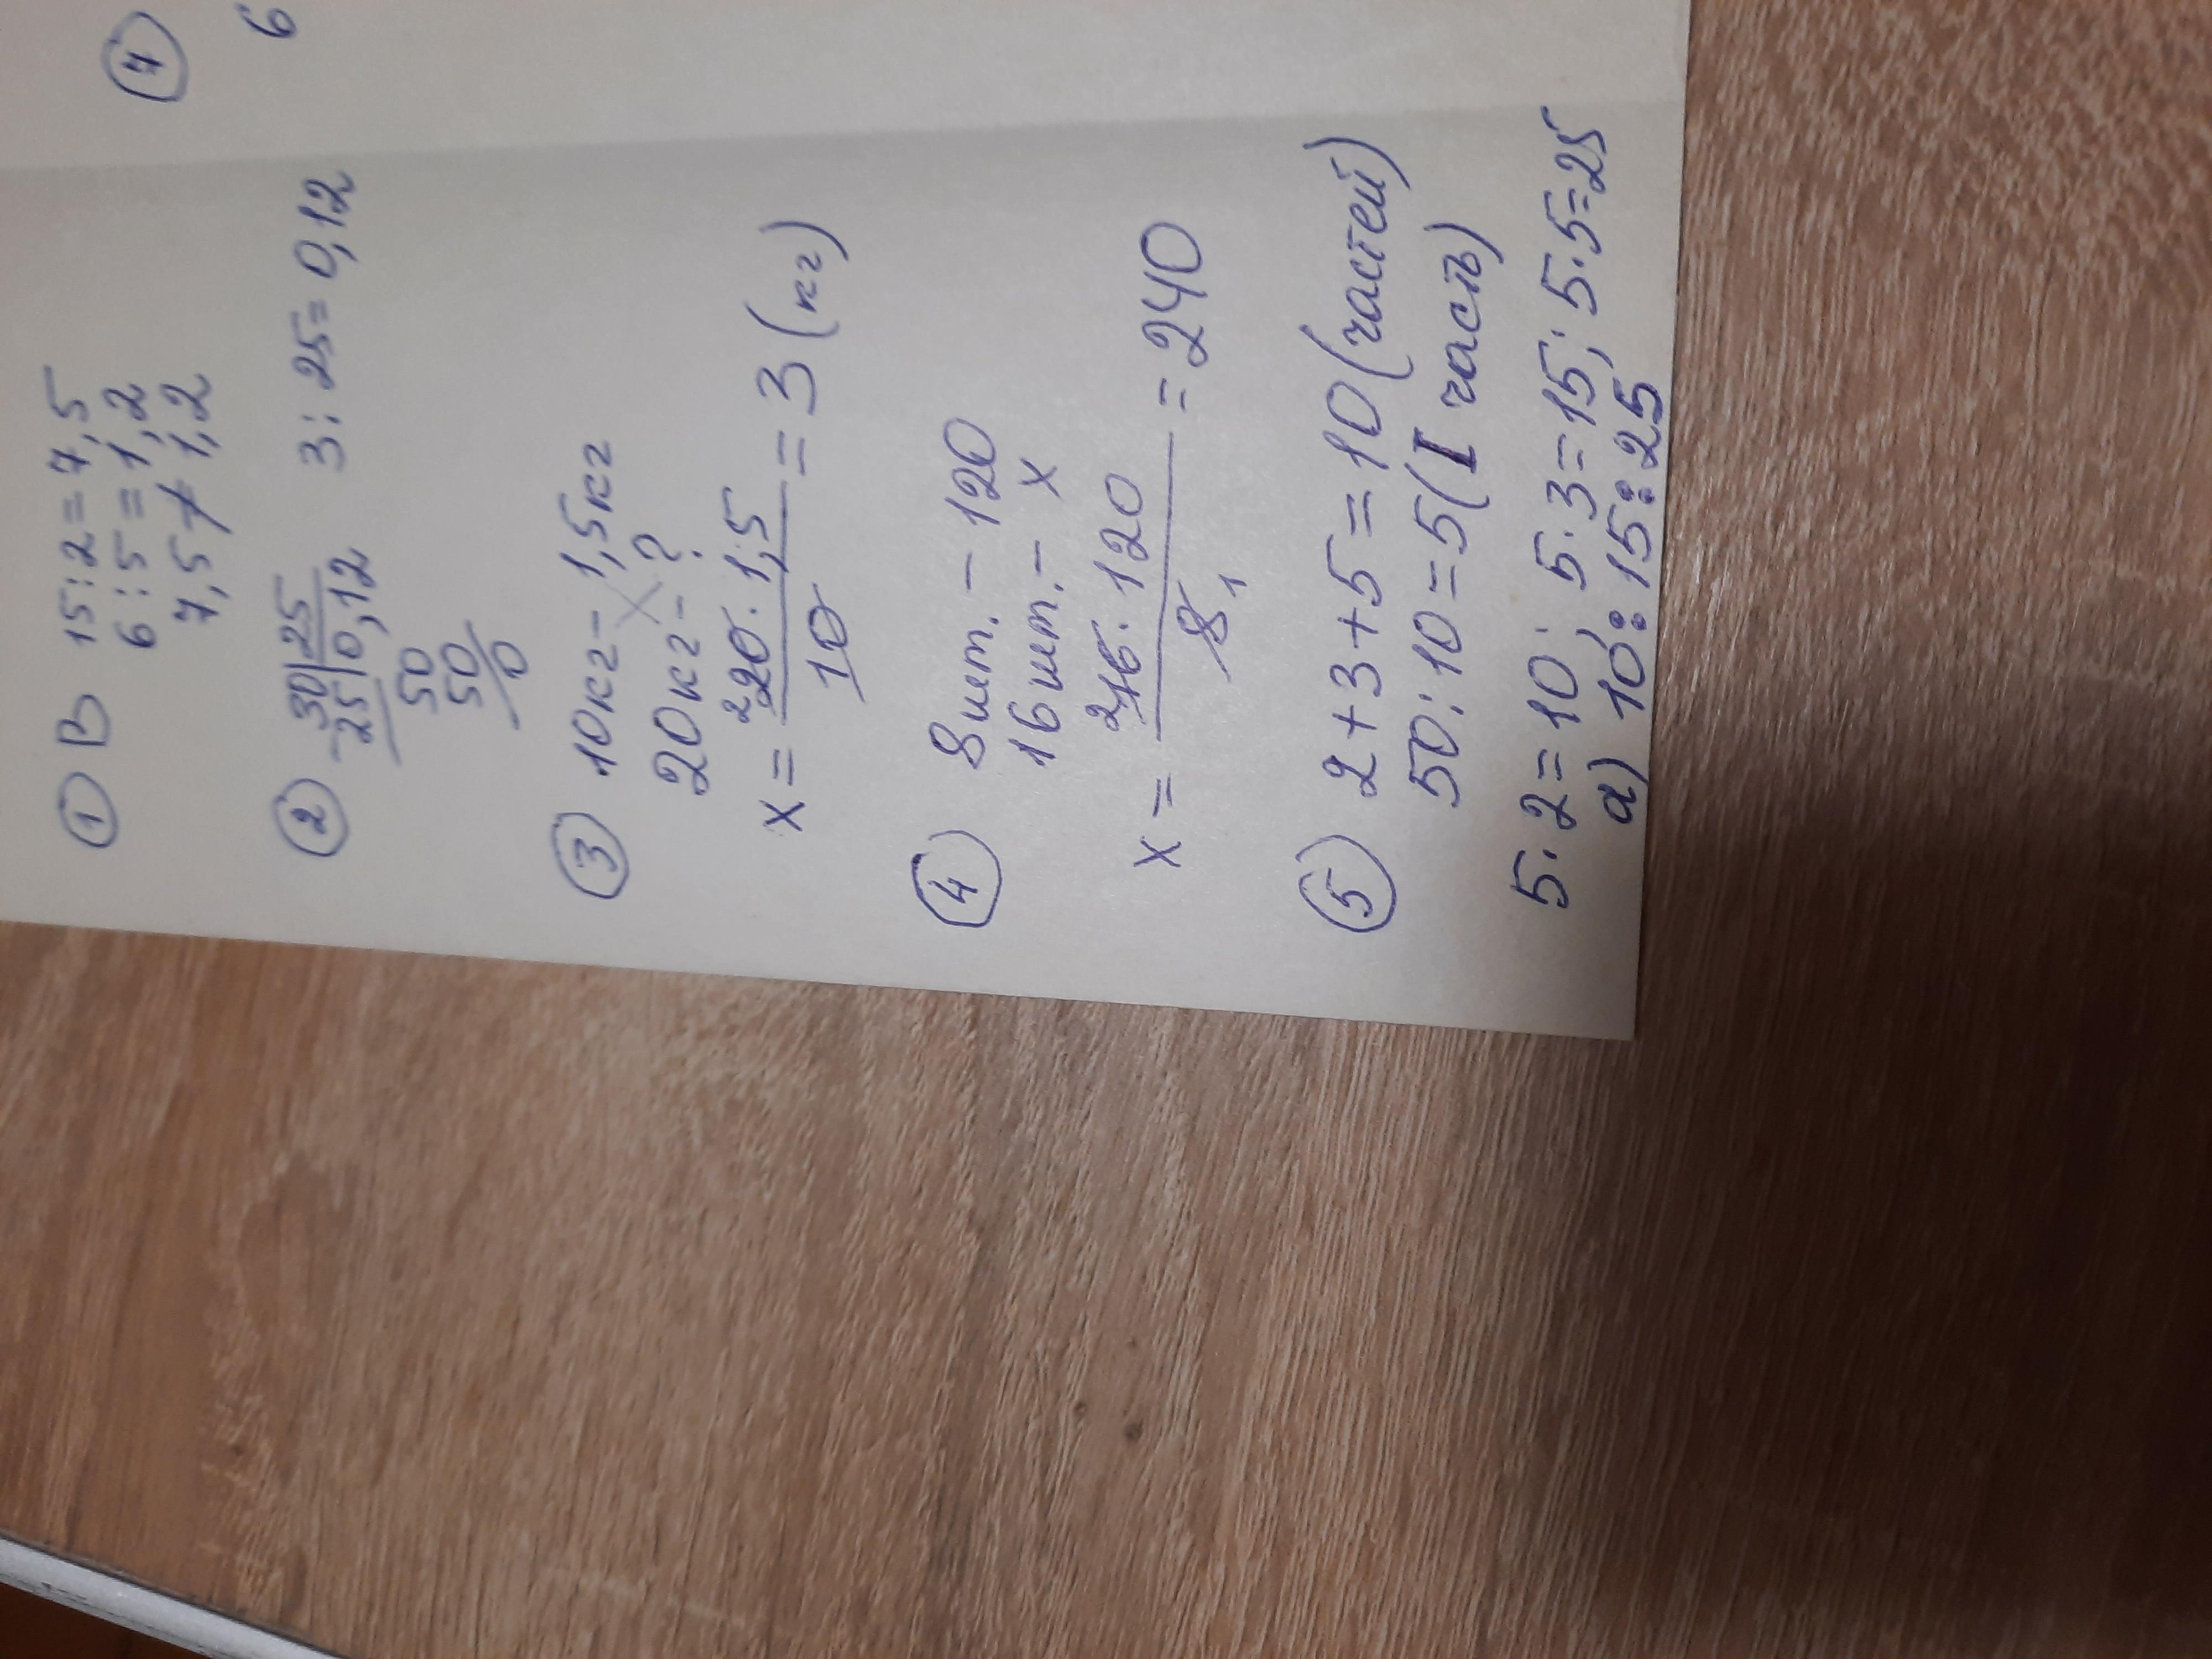 ① В 15:2=7,5
6:5=1,2
7,5≠1,2
② 30|25 3:25=0,12
25|0,12
50
50
0
③ 10кг-1,5кг
20кг-?
x=20·1,5/10=3(кг)
④ 8шт.-120
16шт.-x
x=16·120/8=240
⑤ 2+3+5=10(частей)
50:10=5(I часть)
5·2=10; 5·3=15; 5·5=25
а) 10:15:25
⑦
6